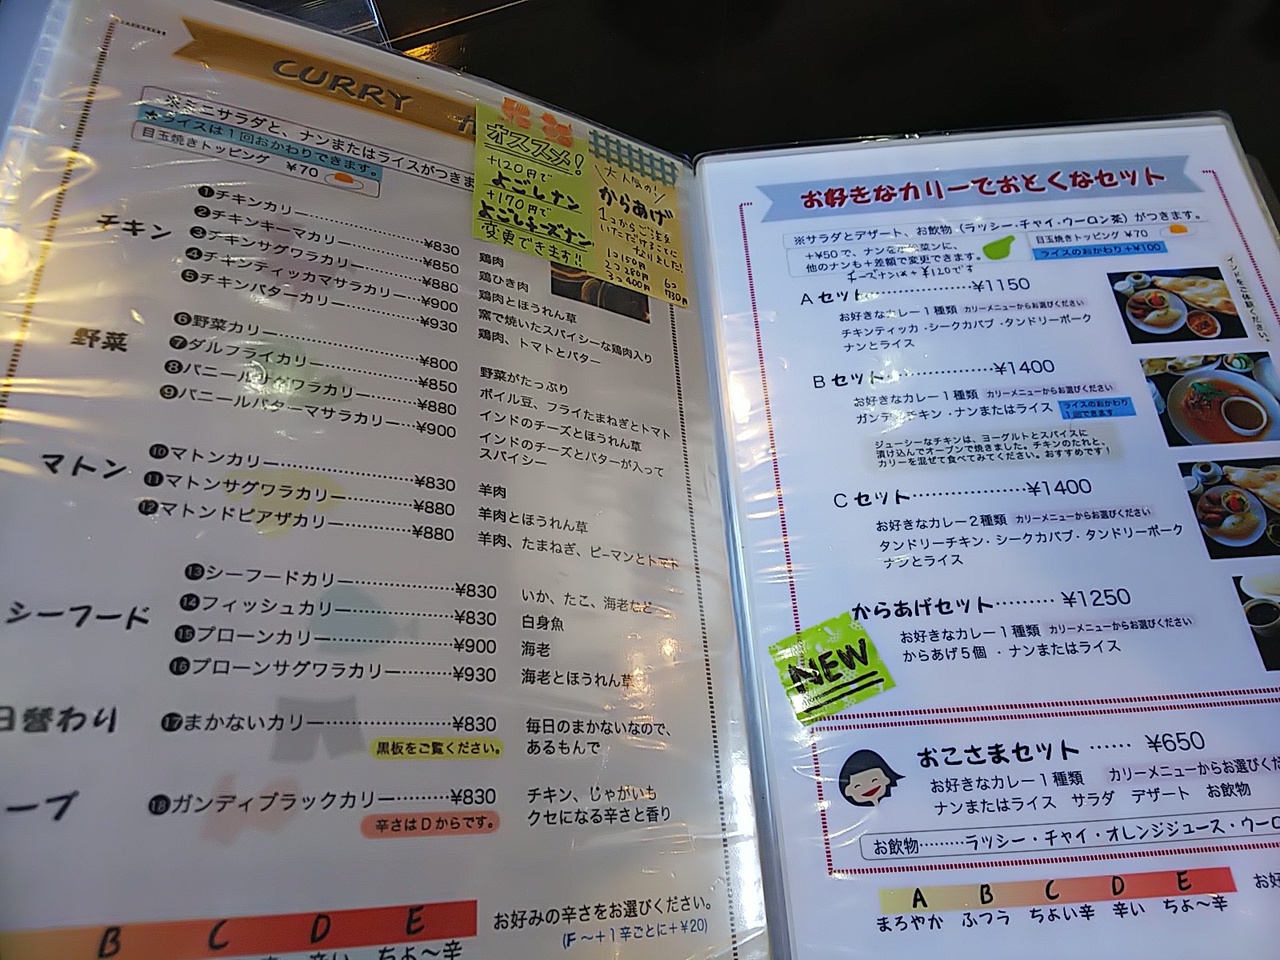 CURRY
※ミニサラダと、ナンまたはライスがつきま
★ライスは1回おかわりできます。
目玉焼きトッピング ¥70
オススメ!
+120円で
よごしナン
+170円で
よごしチーズナン
変更できます!!
大人気の!
からあげ
1コからご注文
いただけるように
なりました!
1コ150円
2コ280円
3コ400円
6コ
730円
チキン
❶チキンカリー……¥830 鶏肉
❷チキンキーマカリー……¥850 鶏ひき肉
❸チキンサグワラカリー……¥880 鶏肉とほうれん草
❹チキンティッカマサラカリー……¥900 窯で焼いたスパイシーな鶏肉入り
❺チキンバターカリー……¥930 鶏肉、トマトとバター
野菜
❻野菜カリー……¥800 野菜がたっぷり
❼ダルフライカリー……¥850 ボイル豆、フライたまねぎとトマト
❽パニールサグワラカリー……¥880 インドのチーズとほうれん草
❾パニールバターマサラカリー……¥900 インドのチーズとバターが入って
スパイシー
マトン
❿マトンカリー……¥830 羊肉
⓫マトンサグワラカリー……¥880 羊肉とほうれん草
⓬マトンドピアザカリー……¥880 羊肉、たまねぎ、ピーマンとトマト
シーフード
⓭シーフードカリー……¥830 いか、たこ、海老など
⓮フィッシュカリー……¥830 白身魚
⓯プローンカリー……¥900 海老
⓰プローンサグワラカリー……¥930 海老とほうれん草
日替わり
⓱まかないカリー……¥830 毎日のまかないなので、
黒板をご覧ください。 あるもんで
ープ
⓲ガンディブラックカリー……¥830 チキン、じゃがいも
辛さはDからです。 クセになる辛さと香り
B C D E
辛い ちょ〜辛
お好みの辛さをお選びください。
(F〜+1辛ごとに+¥20)
お好きなカリーでおとくなセット
※サラダとデザート、お飲物（ラッシー・チャイ・ウーロン茶）がつきます。
+¥50で、ナンを
菜ナンに、
他のナンも+差額で変更できます。
チーズナンは+¥120です
目玉焼きトッピング ¥70
ライスのおかわり+¥100
インドをご体験ください。
Aセット……¥1150
お好きなカレー1種類 カリーメニューからお選びください
チキンティッカ・シークカバブ・タンドリーポーク
ナンとライス
Bセット……¥1400
お好きなカレー1種類 カリーメニューからお選びください
ガンディチキン・ナンまたはライス ライスのおかわり
1回できます
ジューシーなチキンは、ヨーグルトとスパイスに
漬け込んでオーブンで焼きました。チキンのたれと、
カリーを混ぜて食べてみてください。おすすめです！
Cセット……¥1400
お好きなカレー2種類 カリーメニューからお選びください
タンドリーチキン・シークカバブ・タンドリーポーク
ナンとライス
からあげセット……¥1250
NEW
お好きなカレー1種類 カリーメニューからお選びください
からあげ5個 ・ナンまたはライス
おこさまセット……¥650
お好きなカレー1種類 カリーメニューからお選びくだ
ナンまたはライス サラダ デザート お飲物
お飲物………ラッシー・チャイ・オレンジジュース・ウーロ
A B C D E
まろやか ふつう ちょい辛 辛い ちょ〜辛
お好